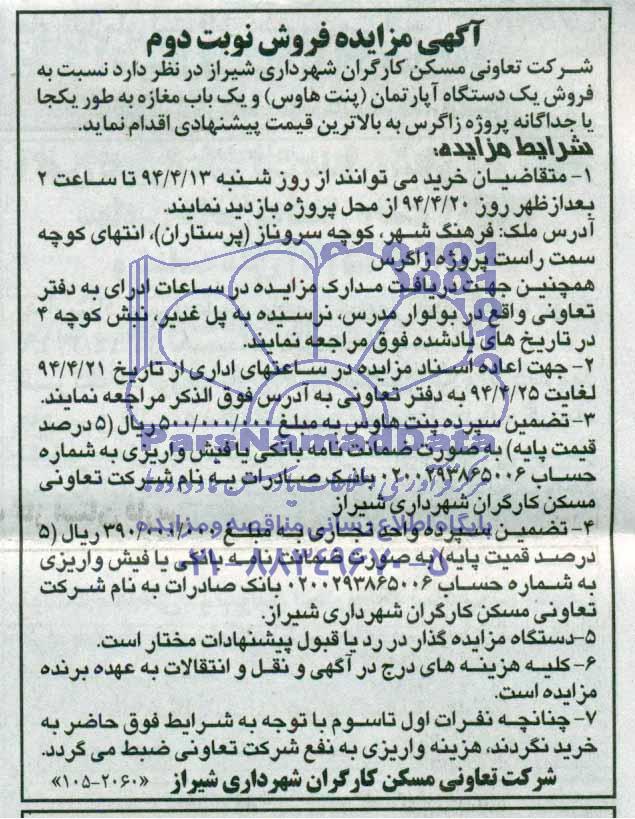 آگهی مزایده فروش نوبت دوم
شرکت تعاونی مسکن کارگران شهرداری شیراز در نظر دارد نسبت به
فروش یک دستگاه آپارتمان (پنت هاوس) و یک باب مغازه به طور یکجا
یا جداگانه پروژه زاگرس به بالاترین قیمت پیشنهادی اقدام نماید.
شرایط مزایده:
۱- متقاضیان خرید می توانند از روز شنبه ۹۴/۴/۱۳ تا ساعت ۲
بعدازظهر روز ۹۴/۴/۲۰ از محل پروژه بازدید نمایند.
آدرس ملک: فرهنگ شهر، کوچه سروناز (پرستاران)، انتهای کوچه
سمت راست پروژه زاگرس
همچنین جهت دریافت مدارک مزایده در ساعات ادرای به دفتر
تعاونی واقع در بولوار مدرس، نرسیده به پل غدیر، نبش کوچه ۴
در تاریخ های یادشده فوق مراجعه نمایند.
۲- جهت اعاده اسناد مزایده در ساعتهای اداری از تاریخ ۹۴/۴/۲۱
لغایت ۹۴/۴/۲۵ به دفتر تعاونی به آدرس فوق الذکر مراجعه نمایند.
۳- تضمین سپرده پنت هاوس به مبلغ ۵۰۰/۰۰۰/۰۰۰ ریال (۵ درصد
قیمت پایه) به صورت ضمانت نامه بانکی یا فیش واریزی به شماره
حساب ۰۲۰۰۲۹۳۸۶۵۰۰۶ بانک صادرات به نام شرکت تعاونی
مسکن کارگران شهرداری شیراز
۴- تضمین سپرده واحد تجاری به مبلغ ۳۹۰/۰۰۰/۰۰۰ ریال (۵
درصد قمیت پایه) به صورت ضمانت نامه بانکی یا فیش واریزی
به شماره حساب ۰۲۰۰۲۹۳۸۶۵۰۰۶ بانک صادرات به نام شرکت
تعاونی مسکن کارگران شهرداری شیراز.
۵-دستگاه مزایده گذار در رد یا قبول پیشنهادات مختار است.
۶- کلیه هزینه های درج در آگهی و نقل و انتقالات به عهده برنده
مزایده است.
۷- چنانچه نفرات اول تاسوم با توجه به شرایط فوق حاضر به
خرید نگردند، هزینه واریزی به نفع شرکت تعاونی ضبط می گردد.
شرکت تعاونی مسکن کارگران شهرداری شیراز «۲۰۶۰-۱۰۵»
ParsNamadData
پایگاه اطلاع رسانی مناقصه و مزایده
۰۲۱-۸۸۳۴۹۶۷۰-۵